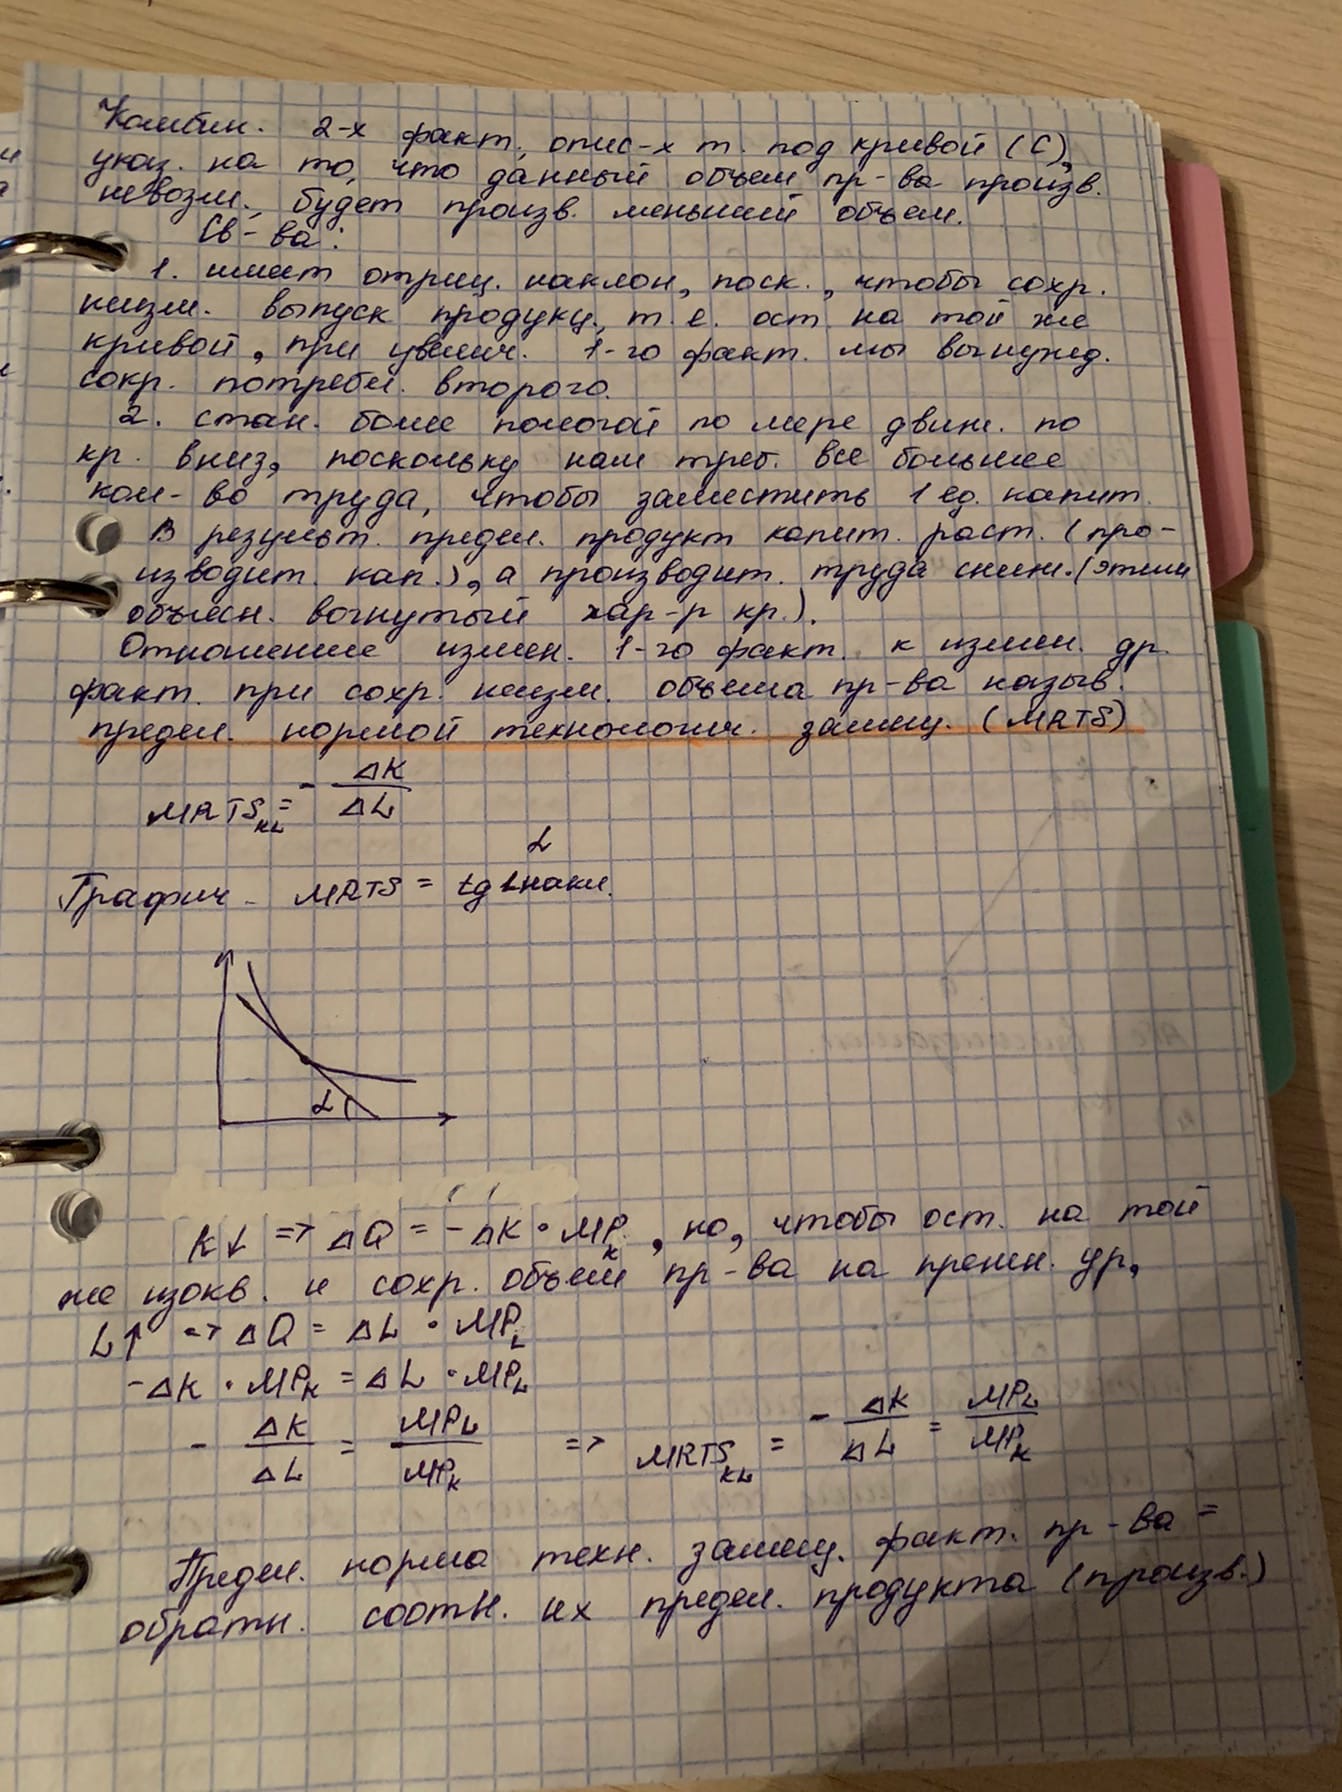 Комбин. 2-х факт., опис-х т. под кривой (С),
указ. на то, что данный объем пр-ва произв.
невозм., будет произв. меньший объем.
Св-ва:
1. имеет отриц. наклон, поск., чтобы сохр.
неизм. выпуск продукц., т.е. ост. на той же
кривой, при увелич. 1-го факт. мы вынужд.
сокр. потребл. второго.
2. стан. более пологой по мере движ. по
кр. вниз, поскольку нам треб. все большее
кол-во труда, чтобы заместить 1 ед. капит.
В результ. предел. продукт капит. раст. (про-
изводит. кап.), а производит. труда сниж. (этим
объясн. вогнутый хар-р кр.).
Отношение измен. 1-го факт. к измен. др.
факт. при сохр. неизм. объема пр-ва назыв.
предел. нормой технологич. замещ. (MRTS)
MRTS_KL = - ΔK/ΔL
α
Графич - MRTS = tg ∠накл.
α
K↓ => ΔQ = -ΔK • MP_K, но, чтобы ост. на той
же изокв. и сохр. объем пр-ва на прежн. ур,
L↑ => ΔQ = ΔL • MP_L
-ΔK • MP_K = ΔL • MP_L
- ΔK/ΔL = MP_L/MP_K => MRTS_KL = - ΔK/ΔL = MP_L/MP_K
Предел. норма техн. замещ. факт. пр-ва =
обратн. соотн. их предел. продукта (произв.)